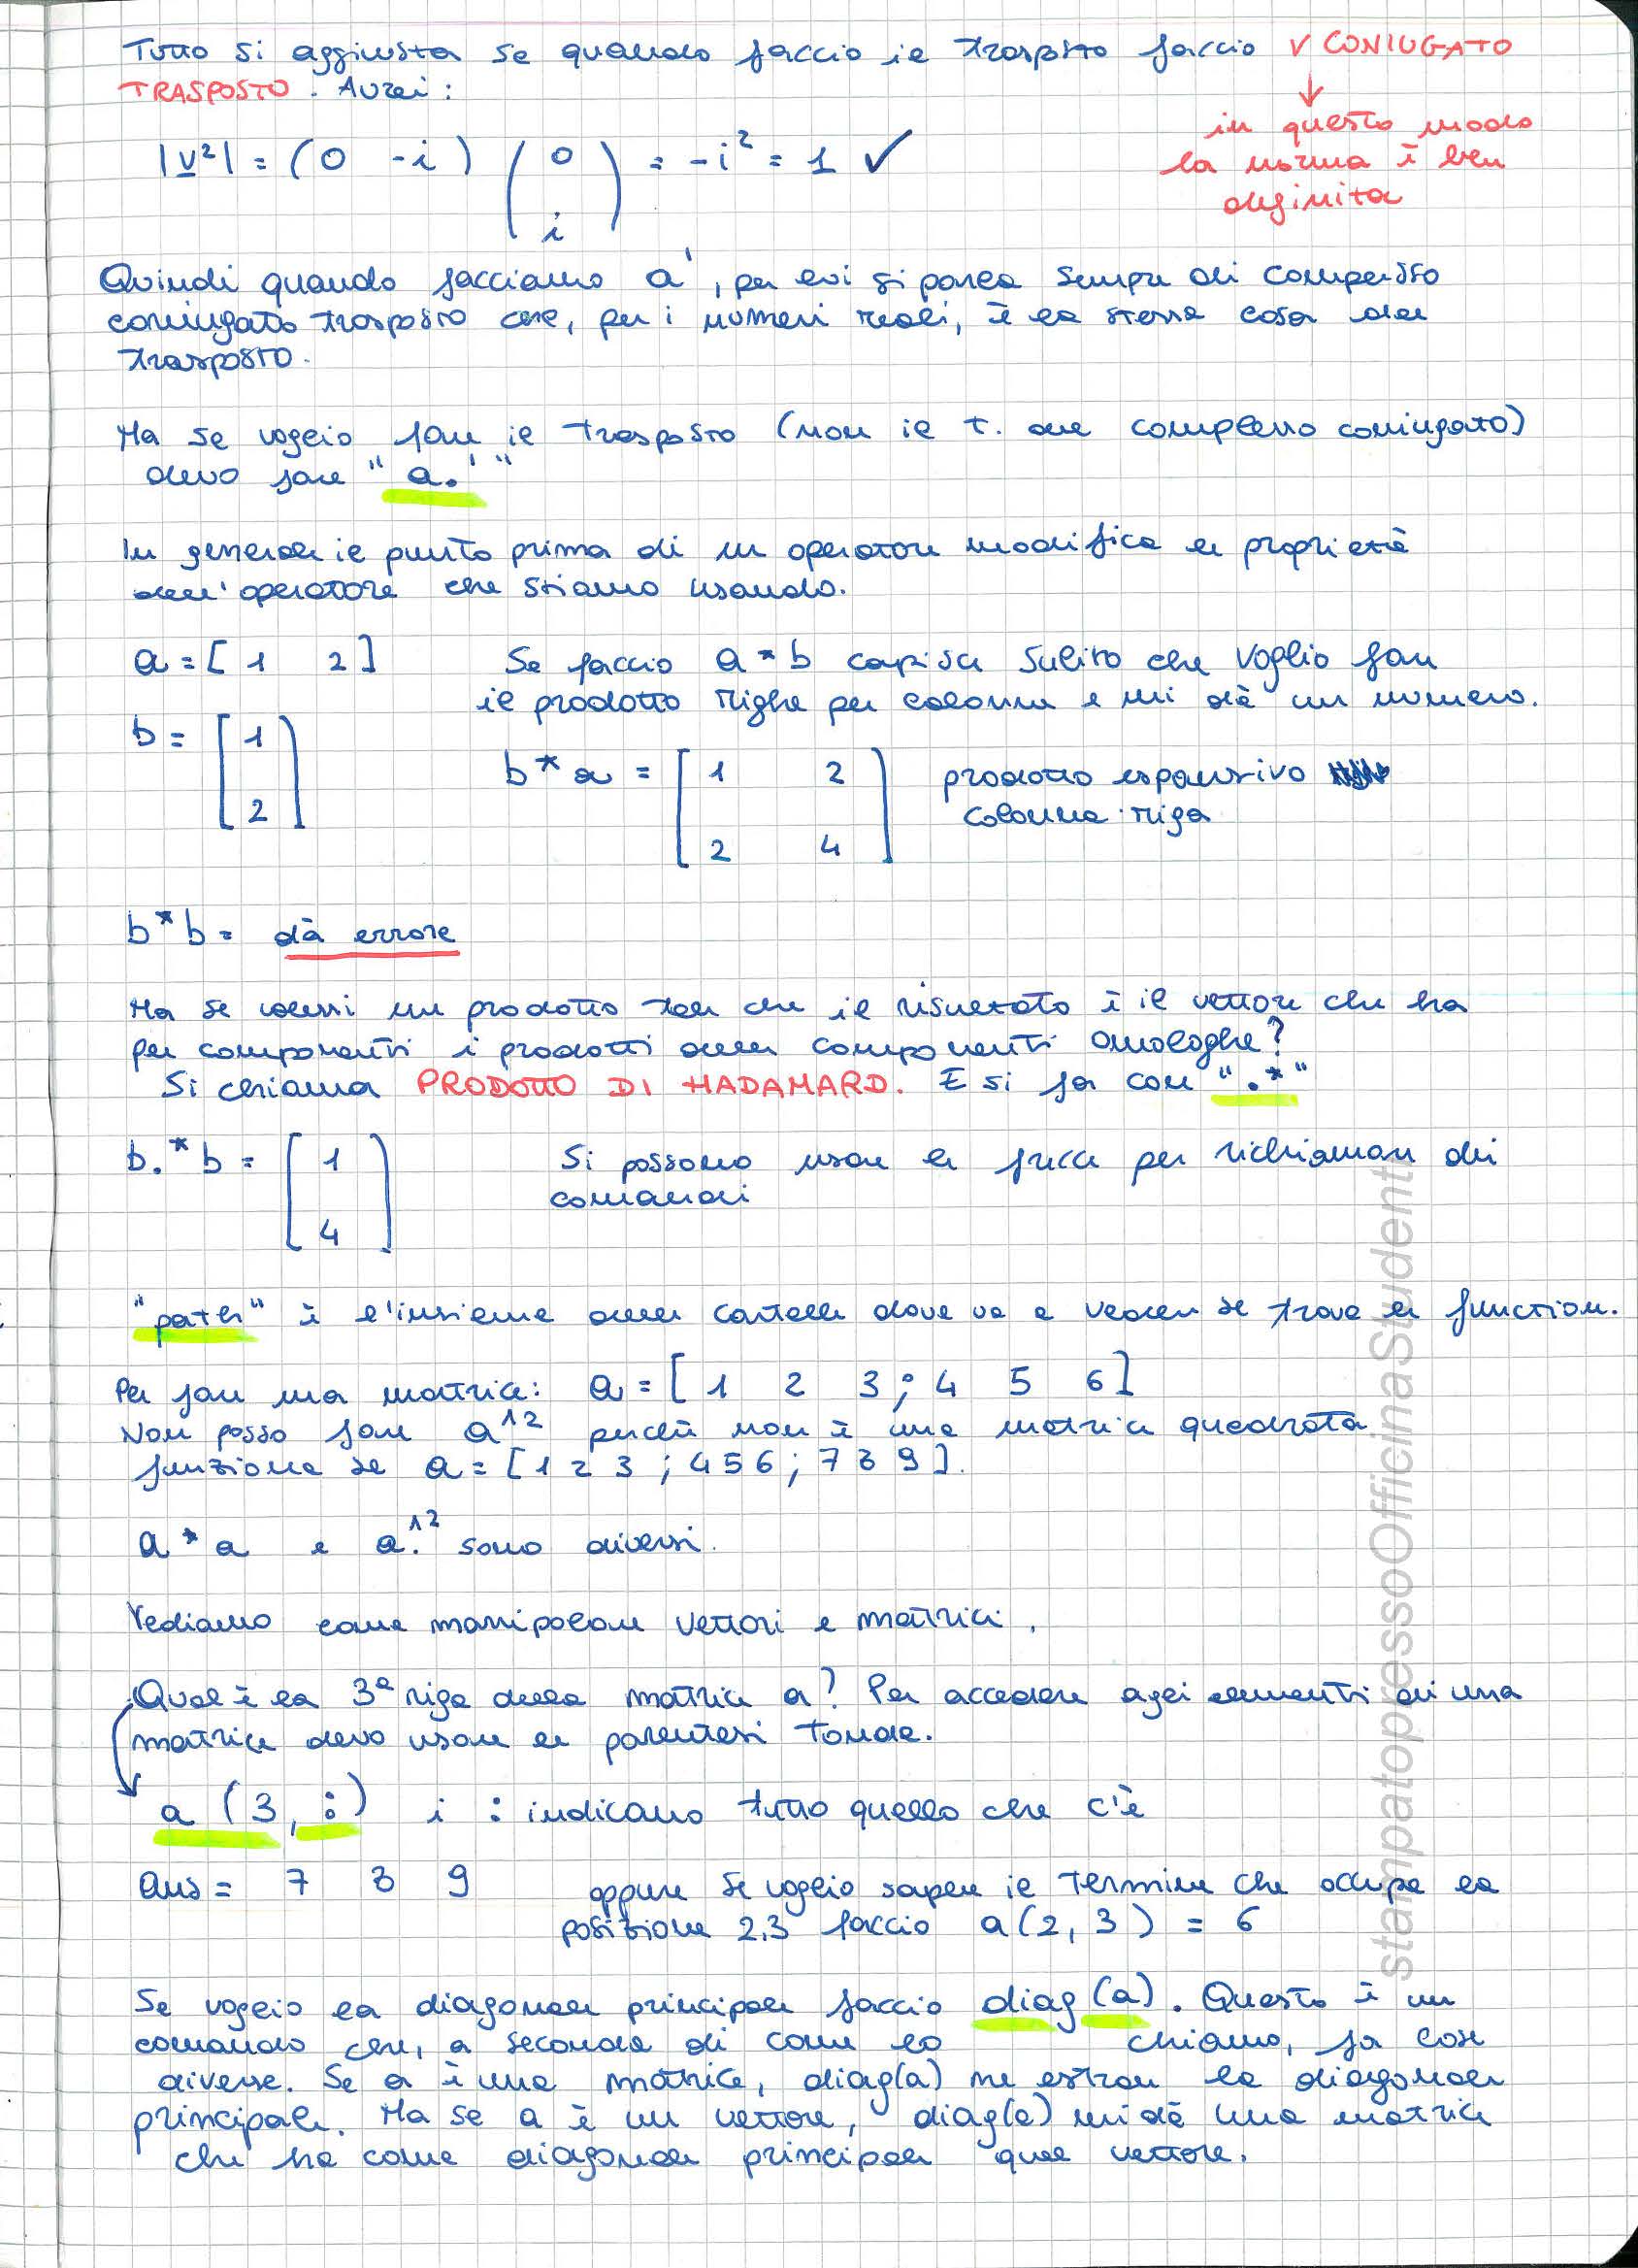 Tutto si aggiusta se quando faccio il trasposto faccio v CONIUGATO
TRASPOSTO. Avrei:
↓
in questo modo
la norma è ben
definita
|v²| = (0 -i) (0 i) = -i² = 1 ✓
Quindi quando facciamo a', per lui si parla sempre di complesso
coniugato trasposto che, per i numeri reali, è la stessa cosa del
trasposto.
Ma se voglio fare il trasposto (non il t. del complesso coniugato)
devo fare "a.'"
In generale il punto prima di un operatore modifica le proprietà
dell'operatore che stiamo usando.
a = [1 2] Se faccio a*b capisce subito che voglio fare
il prodotto righe per colonne e mi dà un numero.
b = [1 2]
b*a = [1 2 2 4] prodotto espansivo
colonna·riga
b*b = dà errore
Ma se volessi un prodotto tale che il risultato è il vettore che ha
per componenti i prodotti delle componenti omologhe?
Si chiama PRODOTTO DI HADAMARD. E si fa con ".*"
b.*b = [1 4] Si possono usare le frecce per richiamare dei
comandi
"path" è l'insieme delle cartelle dove va a vedere se trova le function.
Per fare una matrice: a = [1 2 3; 4 5 6]
Non posso fare a^2 perchè non è una matrice quadrata
funziona se a = [1 2 3; 4 5 6; 7 8 9].
a*a e a.^2 sono diversi.
Vediamo come manipolare vettori e matrici.
Qual è la 3ª riga della matrice a? Per accedere agli elementi di una
matrice devo usare le parentesi tonde.
a(3,:) i : indicano tutto quello che c'è
ans = 7 8 9 oppure se voglio sapere il termine che occupa la
posizione 2,3 faccio a(2,3) = 6
Se voglio la diagonale principale faccio diag(a). Questo è un
comando che, a seconda di come lo chiamo, fa cose
diverse. Se a è una matrice, diag(a) me estrae la diagonale
principale. Ma se a è un vettore, diag(a) mi dà una matrice
che ha come diagonale principale quel vettore.
stampatopressoOfficinaStudenti